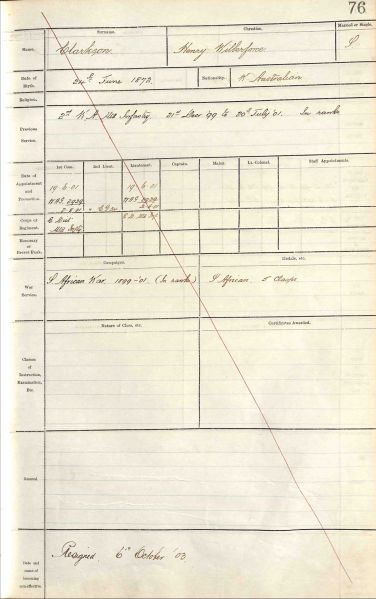 76
Surname.
Christian.
Married or Single.
Name.
Clarkson
Henry Wilberforce
S
Date of Birth.
24th June 1872
Nationality.
W. Australian
Religion.
Previous Service.
2nd W A Mtd Infantry. 21st Decr '99 to 20th July '01. In ranks
Date of Appointment and Promotion.
1st Com.
2nd Lieut.
Lieutenant.
Captain.
Major.
Lt.-Colonel.
Staff Appointments.
19.6.01
19.6.01
Corps or Regiment.
Honorary or Brevet Rank.
War Service.
Campaigns.
Medals, etc.
S African War 1899-'01 (In ranks)
S African 5 Clasps
Classes of Instruction, Examination, Etc.
Nature of Class, etc.
Certificates Awarded.
General.
Date and cause of becoming non-effective.
Resigned 6th October '03